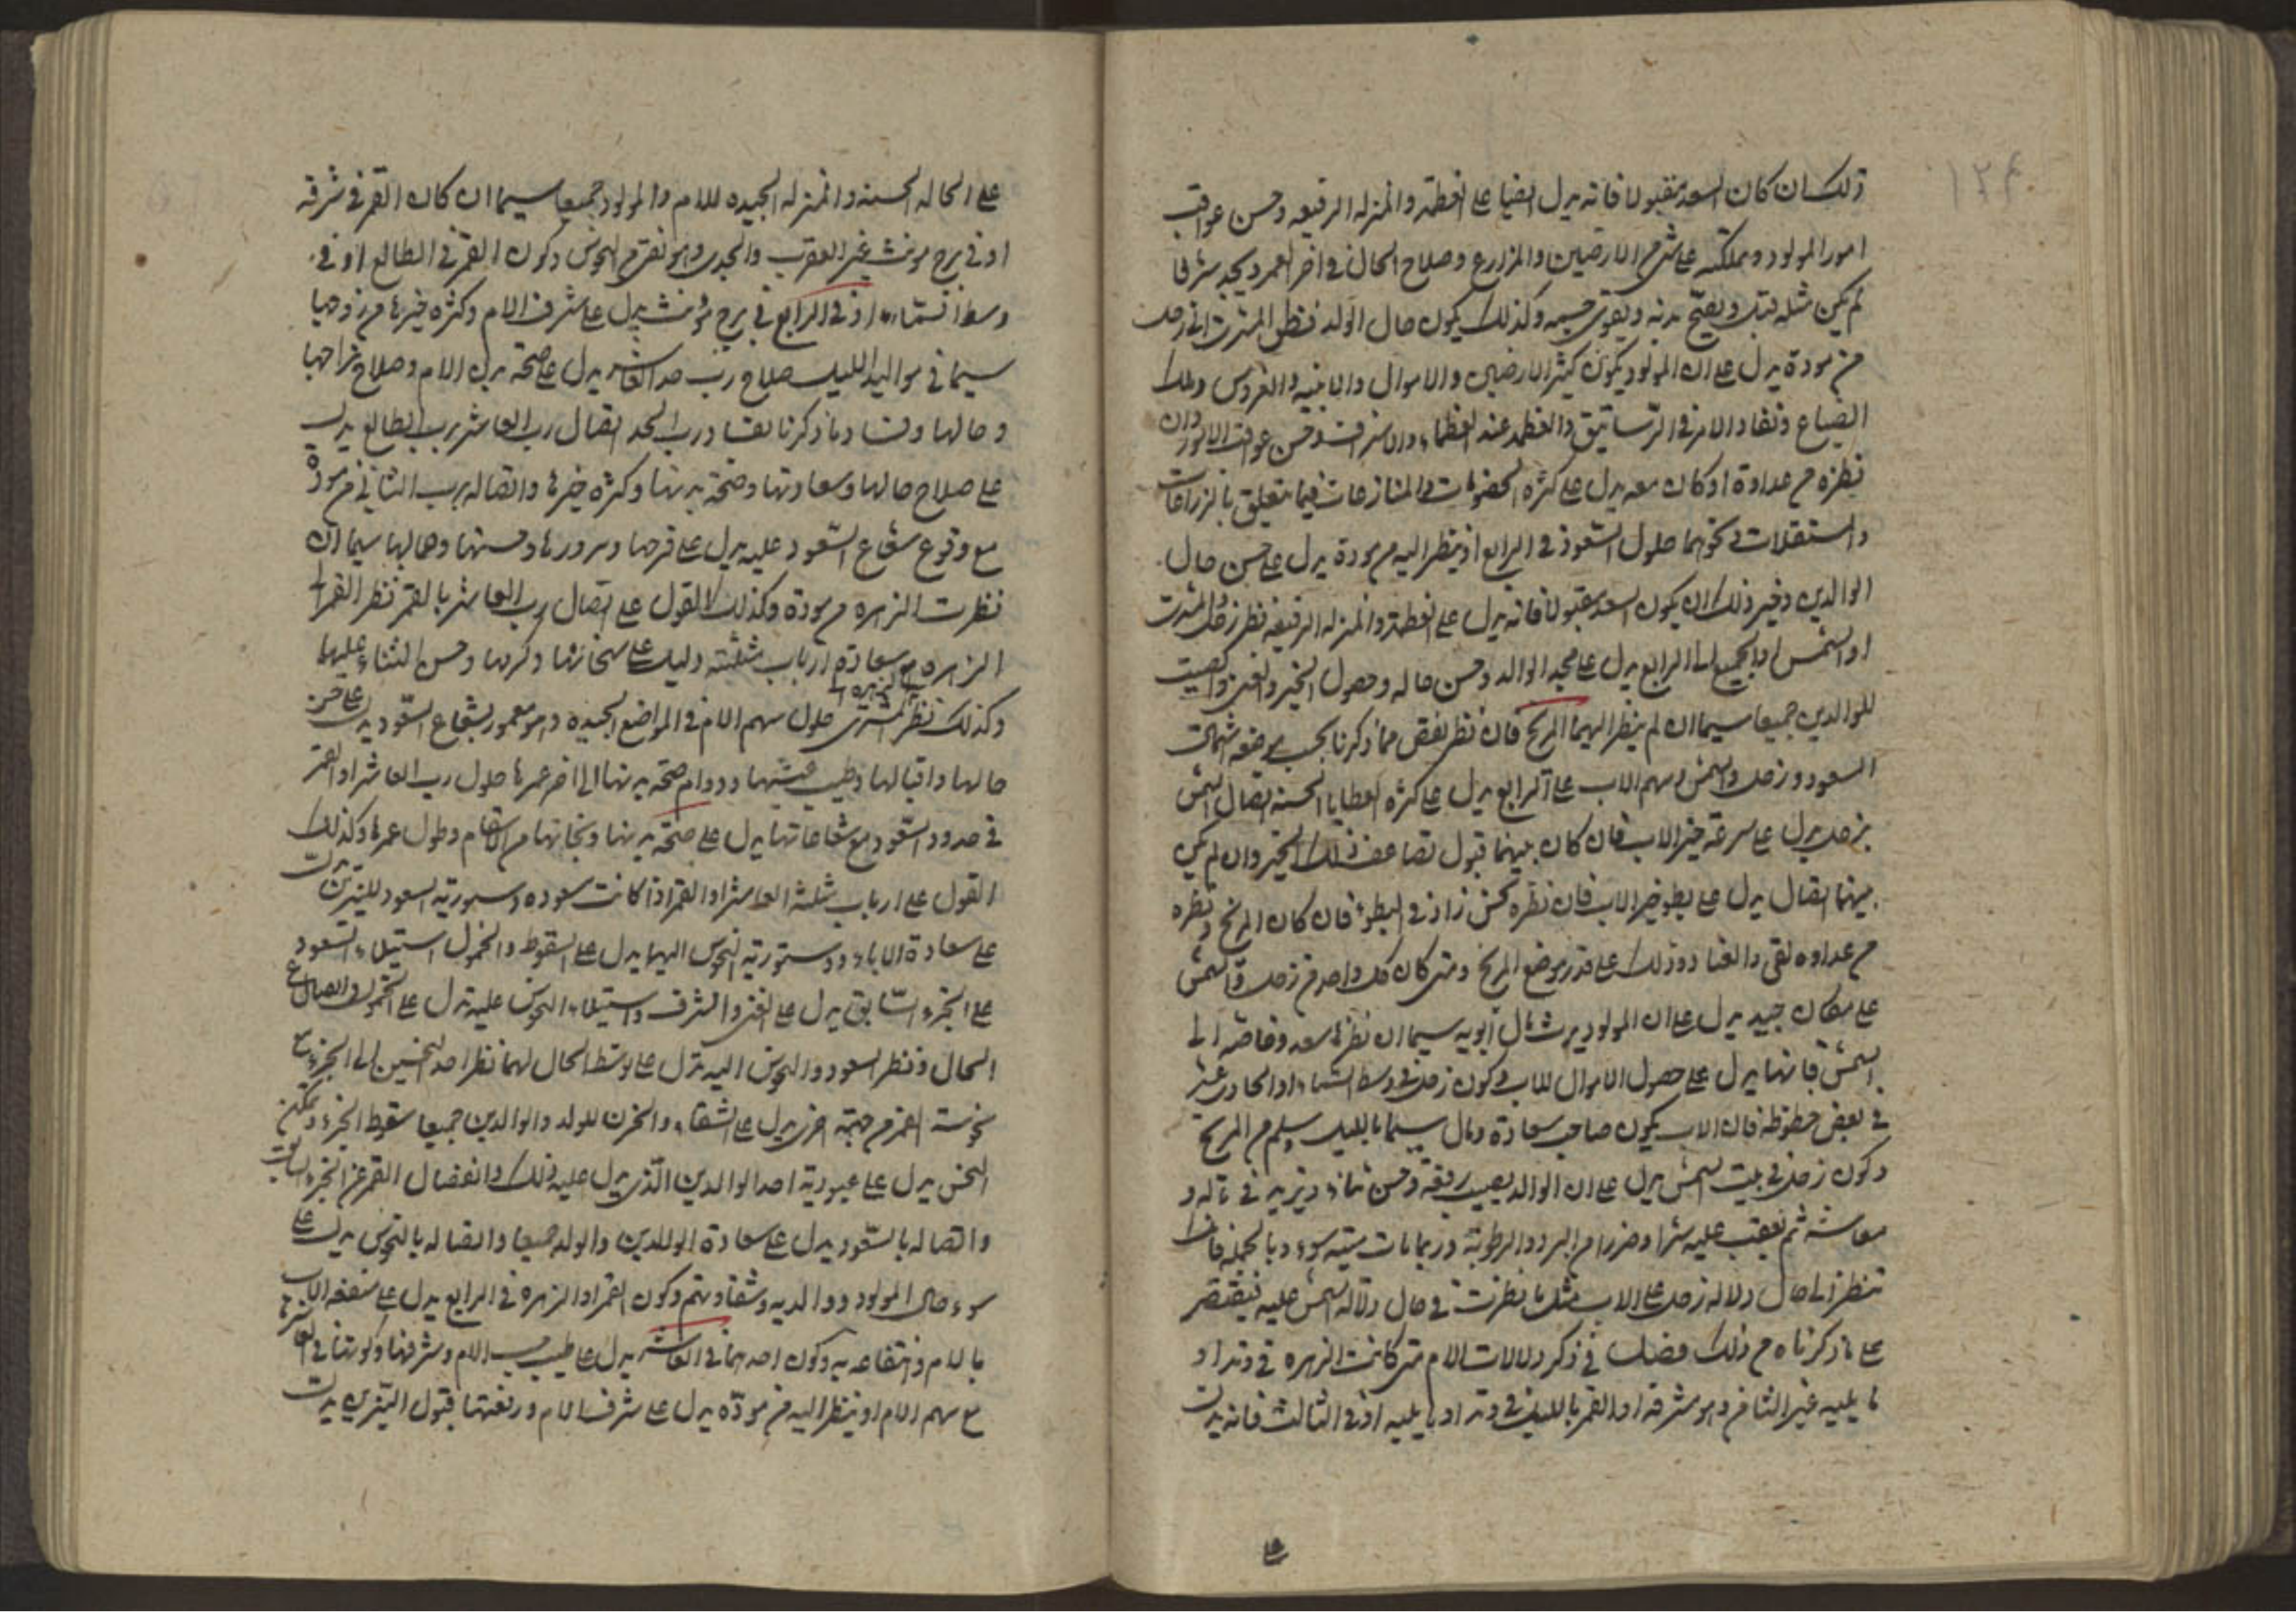 ١٢٤
ذلك ان كان السعد مقبولا فانه يدل ايضا على العظمة والمنزله الرفيعه وحسن عواقب
امور المولود ومملكته على شئ من الارضين والمزارع وصلاح الحال فى اخر العمر ويجد شرفا
لم يكن مثله قبل ويصح بدنه ويقوى جسمه وكذلك يكون حال الوالد فنظر المشترى الى زحل
من مودة يدل على ان المولود يكون كثير الارضين والاموال والابنيه والغروس وملك
الضياع ونفاد الامر فى الرساتيق والعظمه عند العظماء والاشراف وحسن عواقب الامور وان
نظره من عداوة او كان معه يدل على كثره الخصومات والمنازعات فيما يتعلق بالزراعات
والمستغلات ونحوهما حلول السعود فى الرابع او ينظر اليه من مودة يدل على حسن حال
الوالدين وخير ذلك ان يكون السعد مقبولا فانه يدل على العظمة والمنزله الرفيعه نظر زحل والمشترى
او الشمس او الجميع الى الرابع يدل على مجد الوالد وحسن حاله وحصول الخير والغنى والصيت
للوالدين جميعا سيما ان لم ينظر اليهما المريخ فان نظر نقص مما ذكرنا بحسب موضعه
السعود وزحل والشمس وسهم الاب على الرابع يدل على كثره العطايا الحسنه اتصال الشمس
بزحل يدل على سرعة خير الاب فان كان بينهما قبول تضاعف ذلك الخير وان لم يكن
بينهما اتصال يدل على بطوء خير الاب فان نظره نحس زاد فى البطوء فان كان المريخ ونظره
من عداوه لقى والفساد وذلك على قدر موضع المريخ ومتى كان كل واحد من زحل والشمس
على مكان جيد يدل على ان المولود يرث مال ابويه سيما ان نظرها سعد وخاصة الى
الشمس فانها يدل على حصول الاموال للاب وكون زحل فى وسط السماء او الحادى عشر
فى بعض حظوظه فان الاب يكون صاحب سعادة ومال سيما بالليل وسلم من المريخ
وكون زحل فى بيت الشمس يدل على ان الوالد يصيب رفعة وحسن ثناء ويزيد فى ماله و
معاشه ثم يعقب عليه شرا وضررا من البرد والرطوبة وربما مات ميتة سوء وبالجمله فان
تنظر الى حال دلاله زحل على الاب مثل ما نظرت فى حال دلالة الشمس عليه فيقتصر
على ما ذكرناه من ذلك فصل فى ذكر دلالات الام متى كانت الزهره فى وتد او
ما يليه غير الثامن وهو شرقه او القمر بالليل فى وتد او ما يليه او فى الثالث فانه يدل
على الحاله الحسنه والمنزله الجيده للام والمولود جميعا سيما ان كان القمر فى شرفه
او فى برج مونث غير العقرب والجدى وهو نقى من النحوس وكون القمر فى الطالع او فى
وسط السماء او فى الرابع فى برج مونث يدل على شرف الام وكثره خيرها من زوجها
سيما فى مواليد الليل صلاح رب حد العاشر يدل على صحة بدن الام وصلاح مزاجها
وحالها وفساد ما ذكرنا بفساد رب الحد اتصال رب العاشر برب الطالع يدل
على صلاح حالها وسعادتها وصحة بدنها وكثره خيرها واتصاله برب الثانى من مودة
مع وقوع شعاع السعود عليه يدل على فرحها وسرورها وحسنها وجمالها سيما ان
نظرت الزهره من مودة وكذلك القول على اتصال رب العاشر بالقمر نظر القمر الى
الزهره مع سعادة ارباب مثلثته دليل على سخائها وكرمها وحسن الثناء عليها
وكذلك نظر المشترى الى الزهره حلول سهم الام فى المواضع الجيده وهو معمور بشعاع السعود يدل على حسن
حالها واقبالها وطيب عيشها ودوام صحة بدنها الى اخر عمرها حلول رب العاشر او القمر
فى حدود السعود مع شعاعاتها يدل على صحة بدنها ونجاتها من الاسقام وطول عمرها وكذلك
القول على ارباب مثلثة العاشر او القمر اذا كانت مسعوده دستورية السعود للنيرين يدل
على سعادة الاباء ودستورية النحوس اليهما يدل على السقوط والخمول استيلاء السعود
على الجزء السابق يدل على الغنى والشرف واستيلاء النحوس عليه يدل على الخمول واتضاع
الحال ونظر السعود والنحوس اليه يدل على توسط الحال لهما نظر احد النحسين الى الجزء مع
نحوسة القمر من جهة اخرى يدل على الشقاء والحزن للولد والوالدين جميعا سقوط الجزء وتمكن
النحس يدل على عبودية احد الوالدين الذى يدل عليه ذلك وانفصال القمر عن الجزء السابق
واتصاله بالسعود يدل على سعادة الوالدين والولد جميعا واتصاله بالنحوس يدل على
سوء حال المولود ووالديه وشقاوتهم وكون القمر او الزهره فى الرابع يدل على منفعه الاب
بالام وانتفاعه به وكون احدهما فى العاشر يدل على طيب حسب الام وشرفها وكونها فى العاشر
مع سهم الام او ينظر اليه من مودة يدل على شرف الام ورفعتها قبول النيرين يدل